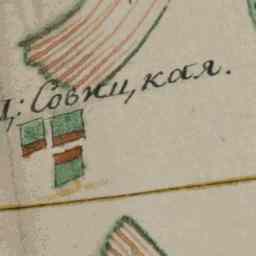 ц: Совицкая.